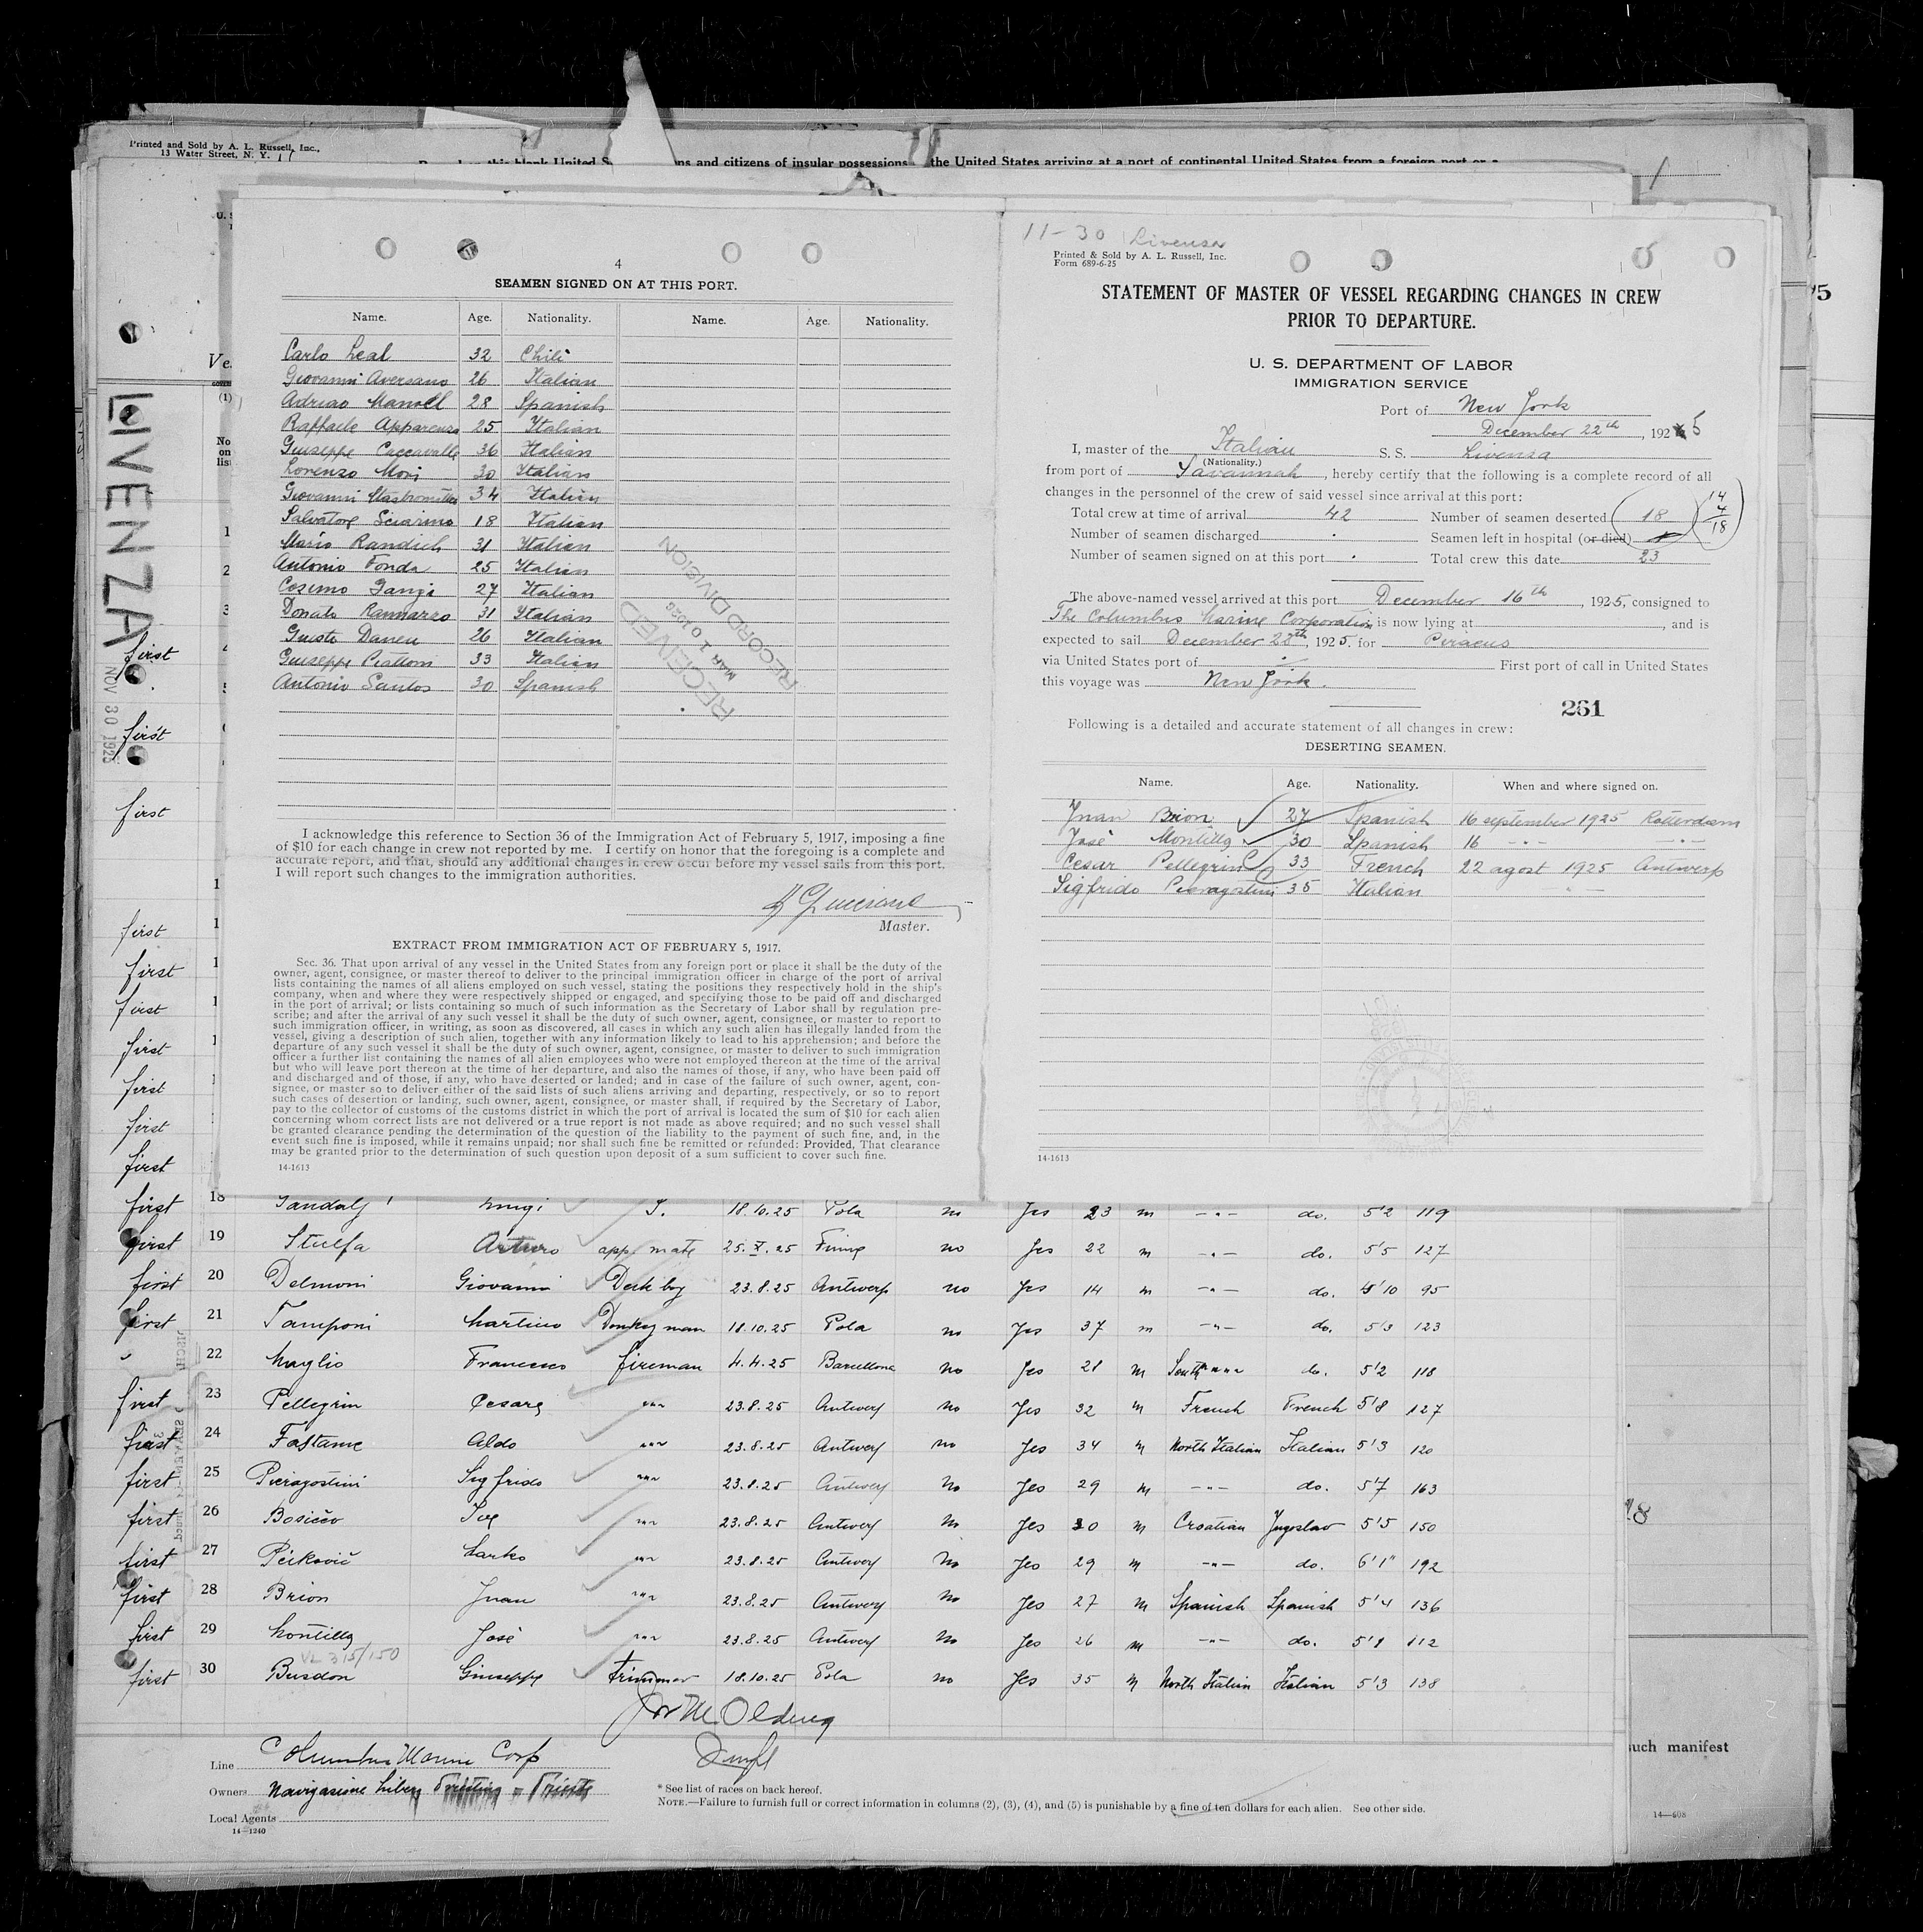 Printed and Sold by A. L. Russell, Inc.,
13 Water Street, N. Y.
ns and citizens of insular possessions the United States arriving at a port of continental United States from a foreign port or a
LIVENZA
NOV 30 1925
4
SEAMEN SIGNED ON AT THIS PORT.
Name. Age. Nationality. Name. Age. Nationality.
Carlo Leal 32 Chili
Giovanni Aversano 26 Italian
Adriao Manoel 28 Spanish
Raffaele Apparenza 25 Italian
Giuseppe Caccavalle 36 Italian
Lorenzo Mori 30 Italian
Giovanni 34 Italian
Salvatore Sciarino 18 Italian
Mario Randich 31 Italian
Antonio Fonda 25 Italian
Cosimo Gangi 27 Italian
Donato Rannazzo 31 Italian
Giusto Daneu 26 Italian
Giuseppe Piattoni 33 Italian
Antonio Santos 30 Spanish
RECEIVED
MAR 10 1926
RECORD DIVISION
I acknowledge this reference to Section 36 of the Immigration Act of February 5, 1917, imposing a fine
of $10 for each change in crew not reported by me. I certify on honor that the foregoing is a complete and
accurate report, and that, should any additional changes in crew occur before my vessel sails from this port,
I will report such changes to the immigration authorities.
Master.
EXTRACT FROM IMMIGRATION ACT OF FEBRUARY 5, 1917.
Sec. 36. That upon arrival of any vessel in the United States from any foreign port or place it shall be the duty of the
owner, agent, consignee, or master thereof to deliver to the principal immigration officer in charge of the port of arrival
lists containing the names of all aliens employed on such vessel, stating the positions they respectively hold in the ship's
company, when and where they were respectively shipped or engaged, and specifying those to be paid off and discharged
in the port of arrival; or lists containing so much of such information as the Secretary of Labor shall by regulation pre-
scribe; and after the arrival of any such vessel it shall be the duty of such owner, agent, consignee, or master to report to
such immigration officer, in writing, as soon as discovered, all cases in which any such alien has illegally landed from the
vessel, giving a description of such alien, together with any information likely to lead to his apprehension; and before the
departure of any such vessel it shall be the duty of such owner, agent, consignee, or master to deliver to such immigration
officer a further list containing the names of all alien employees who were not employed thereon at the time of the arrival
but who will leave port thereon at the time of her departure, and also the names of those, if any, who have been paid off
and discharged and of those, if any, who have deserted or landed; and in case of the failure of such owner, agent, con-
signee, or master so to deliver either of the said lists of such aliens arriving and departing, respectively, or so to report
such cases of desertion or landing, such owner, agent, consignee, or master shall, if required by the Secretary of Labor,
pay to the collector of customs of the customs district in which the port of arrival is located the sum of $10 for each alien
concerning whom correct lists are not delivered or a true report is not made as above required; and no such vessel shall
be granted clearance pending the determination of the question of the liability to the payment of such fine, and, in the
event such fine is imposed, while it remains unpaid; nor shall such fine be remitted or refunded: Provided, That clearance
may be granted prior to the determination of such question upon deposit of a sum sufficient to cover such fine.
14-1613
11-30 Livenza
Printed & Sold by A. L. Russell, Inc.
Form 689-6-25
STATEMENT OF MASTER OF VESSEL REGARDING CHANGES IN CREW
PRIOR TO DEPARTURE.
U. S. DEPARTMENT OF LABOR
IMMIGRATION SERVICE
Port of New York
December 22th, 1925
I, master of the Italian S. S. Livenza
(Nationality.)
from port of Savannah, hereby certify that the following is a complete record of all
changes in the personnel of the crew of said vessel since arrival at this port:
Total crew at time of arrival 42 Number of seamen deserted 18
14
4
18
Number of seamen discharged Seamen left in hospital (or died)
Number of seamen signed on at this port Total crew this date 23
The above-named vessel arrived at this port December 16th, 1925, consigned to
The Columbus Marine Corporation is now lying at , and is
expected to sail December 28th, 1925. for Piraeus
via United States port of First port of call in United States
this voyage was New York.
261
Following is a detailed and accurate statement of all changes in crew:
DESERTING SEAMEN.
Name. Age. Nationality. When and where signed on.
Juan Brion 27 Spanish 16 september 1925 Rotterdam
José Montilla 30 Spanish 16 -"- -"-
Cesar Pellegrin 33 French 22 agost 1925 Antwerp
Sigfrido Pieragostini 35 Italian
14-1613
first 18 Luigi 18.10.25 Pola no Yes 23 m -"- do. 5'2 119
first 19 Stulfa Arturo app. mate 25.X.25 Fiume no Yes 22 m -"- do. 5'5 127
first 20 Delmoni Giovanni Deck boy 23.8.25 Antwerp no Yes 14 m -"- do. 4'10 95
first 21 Tamponi Martino Donkeyman 18.10.25 Pola no Yes 37 m -"- do. 5'3 123
22 Maglio Francesco fireman 4.4.25 Barcellona no Yes 28 m South """ do. 5'2 118
first 23 Pellegrin Cesare """ 23.8.25 Antwerp no Yes 32 m French French 5'8 127
first 24 Aldo """ 23.8.25 Antwerp no Yes 34 m North Italian Italian 5'3 120
first 25 Pieragostini Sigfrido """ 23.8.25 Antwerp no Yes 29 m -"- do. 5'7 163
first 26 """ 23.8.25 Antwerp no Yes 30 m Croatian Jugoslav 5'5 150
first 27 """ 23.8.25 Antwerp no Yes 29 m -"- do. 6'1" 192
first 28 Brion Juan """ 23.8.25 Antwerp no Yes 27 m Spanish Spanish 5'4 136
first 29 Montilla José """ 23.8.25 Antwerp no Yes 26 m -"- do. 5'8 112
first 30 Busdon Giuseppe trimmer 18.10.25 Pola no Yes 35 m North Italian Italian 5'3 138
Line Columbus Marine Corp
Owners Navigazione Libera Triestina = Trieste
Local Agents
14-1240
* See list of races on back hereof.
NOTE.—Failure to furnish full or correct information in columns (2), (3), (4), and (5) is punishable by a fine of ten dollars for each alien. See other side.
such manifest
14-608